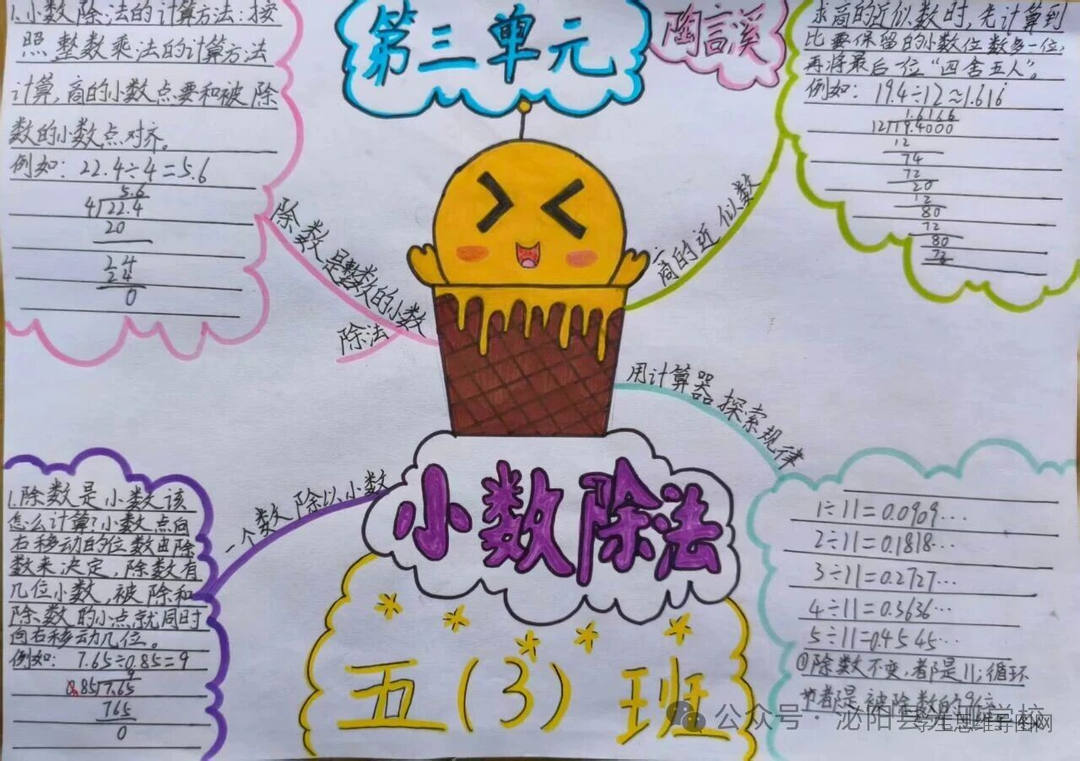 第三单元
陶言溪
1.小数除法的计算方法:按
照整数乘法的计算方法
计算,商的小数点要和被除
数的小数点对齐。
例如:22.4÷4=5.6
5.6
4 22.4
20
24
24
0
除数是整数的小数
除法
求商的近似数时,先计算到
比要保留的小数位数多一位,
再将最后一位“四舍五入”。
例如:19.4÷12≈1.616
1.6166
12 19.4000
12
74
72
20
12
80
72
80
72
商的近似数
用计算器探索规律
1÷11=0.0909...
2÷11=0.1818...
3÷11=0.2727...
4÷11=0.3636...
5÷11=0.4545...
①除数不变,都是11;循环
节都是被除数的9倍
一个数除以小数
1.除数是小数该
怎么计算?小数点向
右移动的位数由除
数来决定,除数有
几位小数,被除和
除数的小点就同时
向右移动几位。
例如:7.65÷0.85=9
9
0.85 7.65
765
0
小数除法
五(3)班
公众号·泌阳县